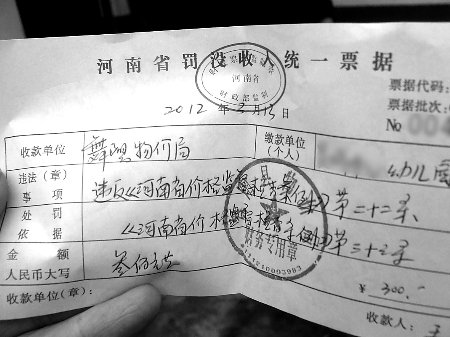 河南省罚没收入统一票据
河南省
财政部监制
票据代码:
票据批次:
2012年3月13日
No 00
收款单位 舞阳物价局 缴款单位(个人)
违法(章)事项 违反《河南省价格监督检查条例》第二十二条
处罚依据 《河南省价格监督检查条例》第三十三条
财务专用章
金额人民币大写 叁佰元整 ¥300.
收款单位(章): 收款人: